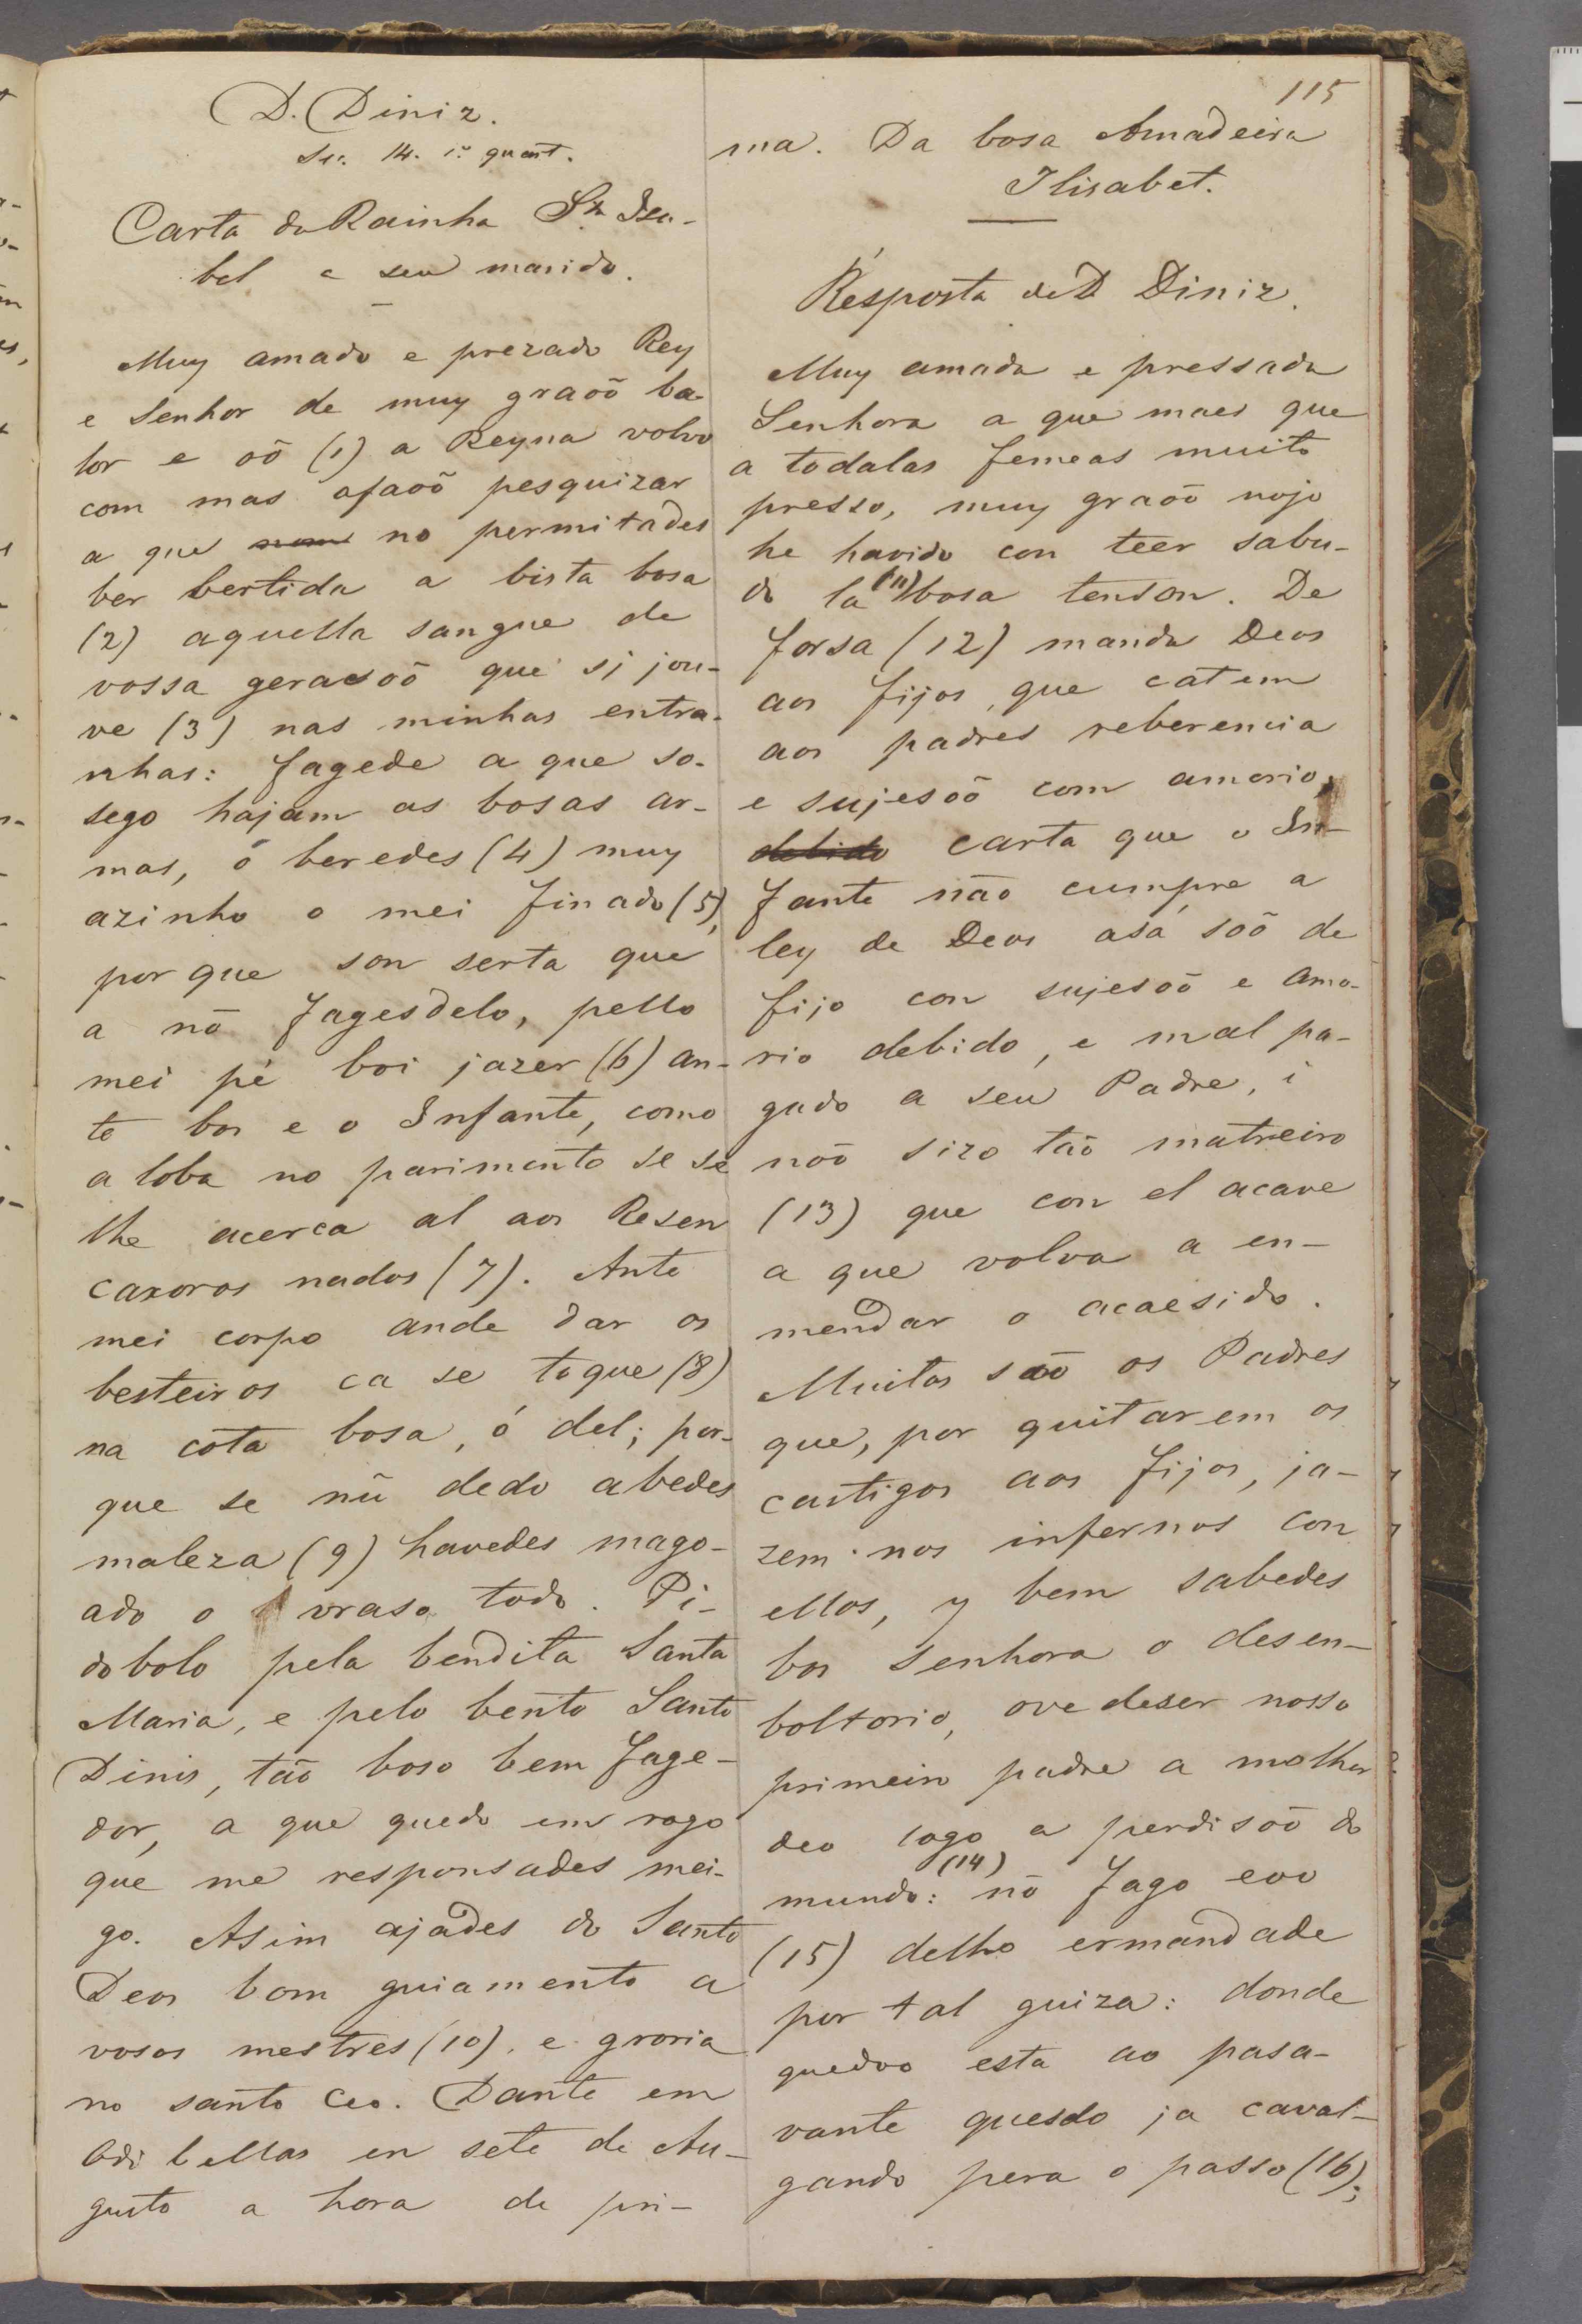 D. Diniz.
Sec. 14. 1.º quart.
Carta da Rainha S.ta Isa-
bel a seu marido.
Muy amado e prezado Rey
e Senhor de muy graoõ ba-
lor e oõ (1) a Reyna volvo
com mas afaoõ pesquizar
a que no permitades
ber bertida a bista bosa
(2) aquella sangue de
vossa gerasoõ que si jou-
ve (3) nas minhas entra-
nhas: fagede a que so-
sego hajam as bosas ar-
mas, ó beredes (4) muy
azinho o mei finado (5),
por que son serta que
a nõ fagesdelo, pello
mei pé boi jazer (6) an-
te bos e o Infante, como
a loba no parimento se se
lhe acerca al aos Resen
caxoros nados (7). Ante
mei corpo ande dar os
besteiros ca se toque (8)
na cota bosa, ó del; por-
que se nũ dedo abedes
maleza (9) havedes mago-
ado o vraso todo. Pi-
dobolo pela bendita Santa
Maria, e pelo bento Santo
Dinis, tão boso bem fage-
dor, a que quedo em rogo
que me responsades mei-
go. Asim ajades do Santo
Deos bom guiamento a
vosos mestres (10), e groria
no santo Ceo. Dante em
Odibellas en sete de Au-
gusto a hora de pri-
115
ma. Da bosa Amadeira
Ilisabet.
Resposta de D Diniz.
Muy amada e pressada
Senhora a que maes que
a todalas femeas muito
presso, muy graoõ nojo
he havido con teer sabu-
do la (11) bosa tenson. De
forsa (12) manda Deos
aos fijos, que catem
aos padres reberencia
e sujesoõ com amorio,
debido carta que o In-
fante não cumpre a
ley de Deos asá soõ de
fijo con sujesoõ e amo-
rio debido, e mal pa-
gado a seu Padre, i
noõ sizo tão matreiro
(13) que con el acave
a que volva a en-
mendar o acaesido.
Muitos são os Padres
que, por quitarem os
castigos aos fijos, ja-
zem nos infernos con
ellos, y bem sabedes
bos Senhora o desen-
boltorio, ove deser nosso
primeiro padre a molher
deo logo a perdisoõ do
mundo: (14) nõ fago eoo
(15) delho ermandade
por tal guiza: donde
quedoo esta ao pasa-
vante quesdo ja caval-
gando pera o passo (16);